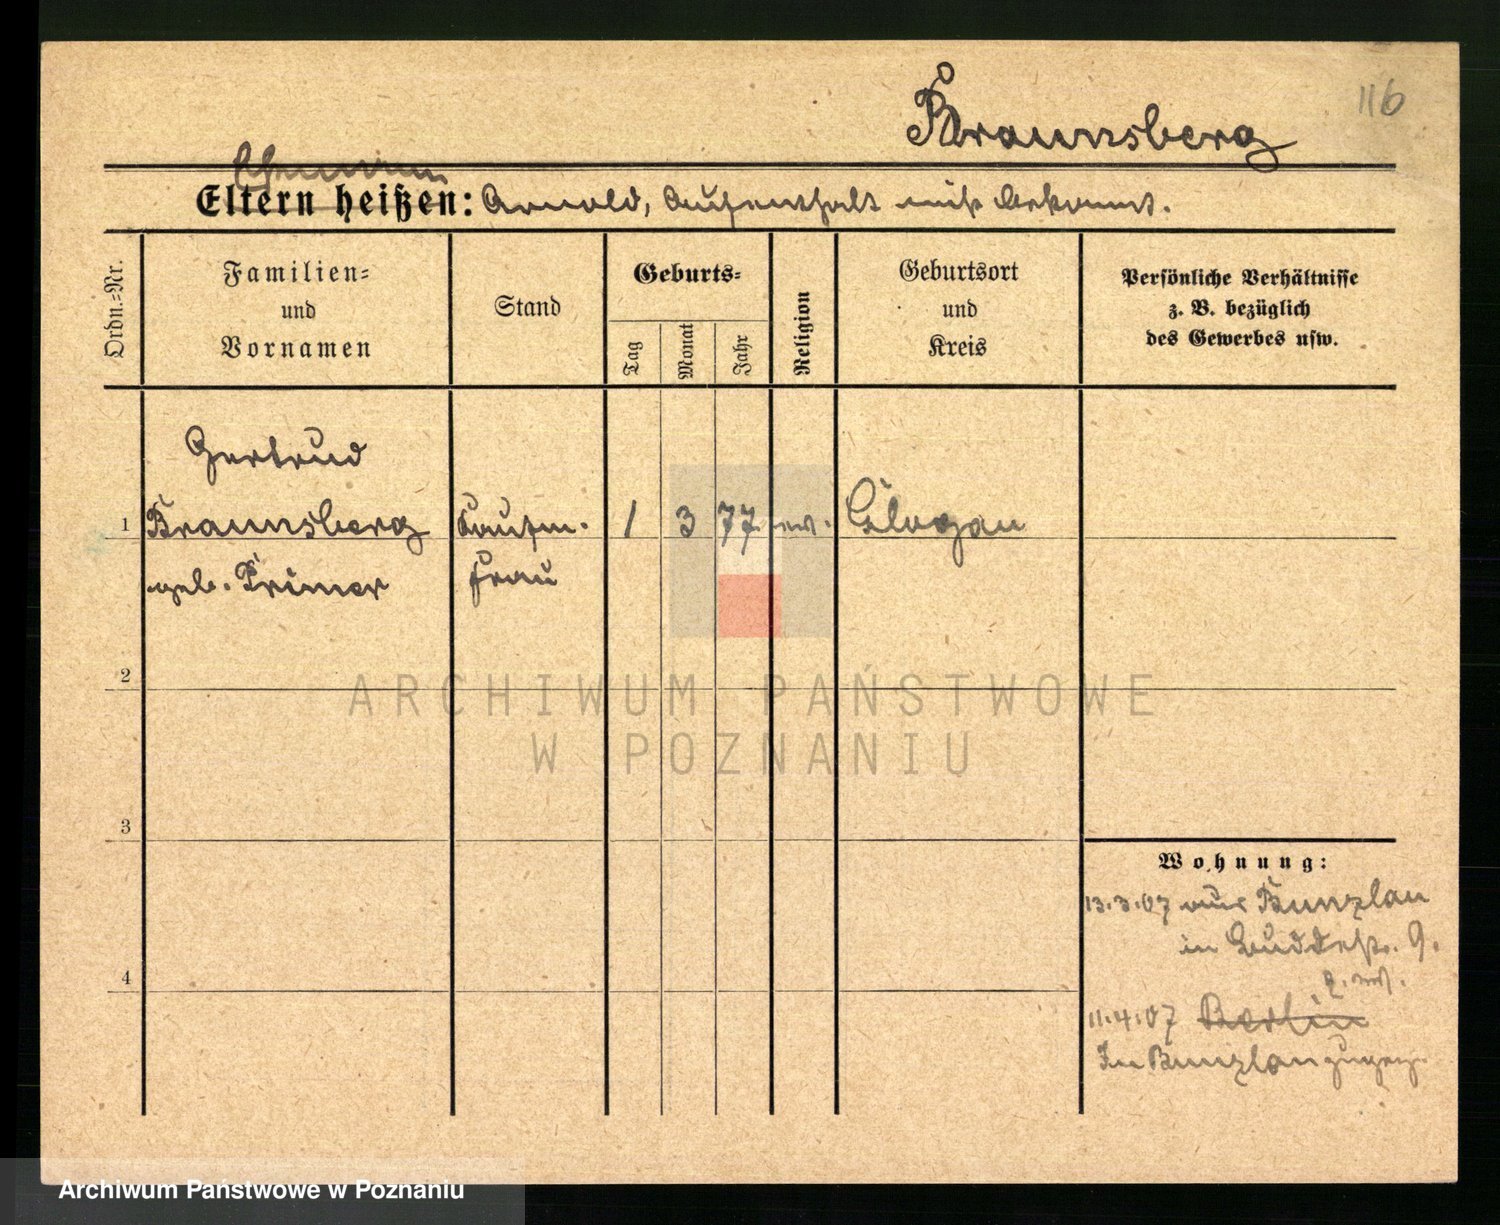 116
Braunsberg
Ehemann
Eltern heißen: Arnold, Aufenthalt nicht bekannt.
Ordn.=Nr.
Familien=
und
Vornamen
Stand
Geburts=
Tag
Monat
Jahr
Religion
Geburtsort
und
Kreis
Persönliche Verhältnisse
z. B. bezüglich
des Gewerbes usw.
Gertrud
1 Braunsberg Kaufm. 1 3 77 Glogau
geb. Primer frau
2
3
4
Wohnung:
13.3.07 aus Bunzlau
in Buddestr. 9.
11.4.07 Berlin
In Bunzlau zugez.
ARCHIWUM PAŃSTWOWE
W POZNANIU
Archiwum Państwowe w Poznaniu